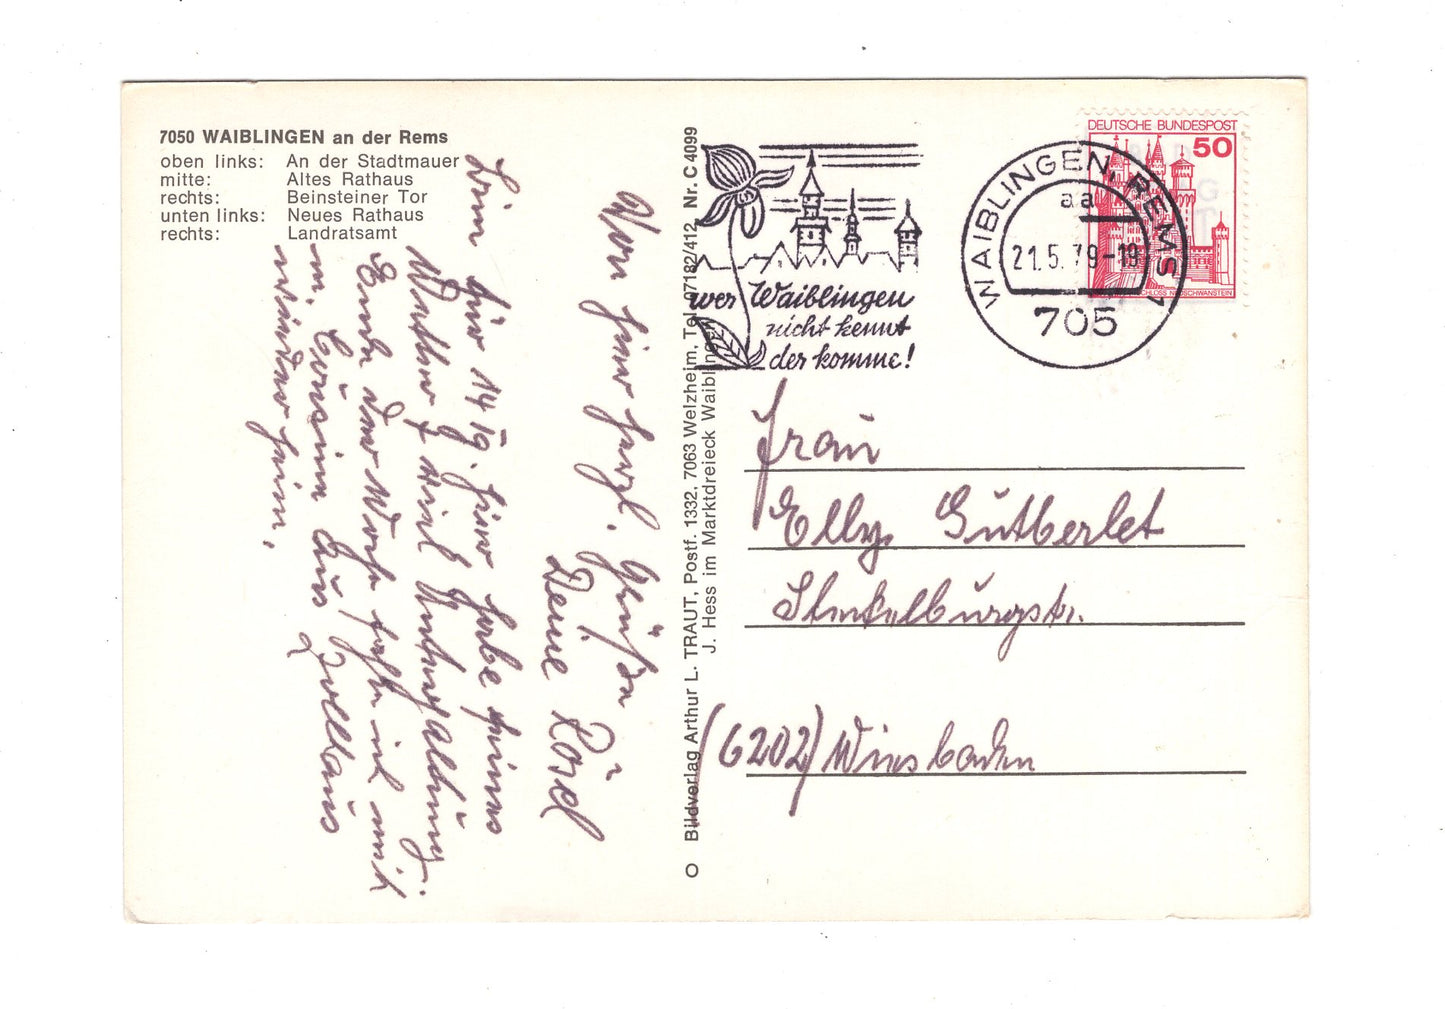 7050 WAIBLINGEN an der Rems
oben links: An der Stadtmauer
mitte: Altes Rathaus
rechts: Beinsteiner Tor
unten links: Neues Rathaus
rechts: Landratsamt
Von hier herzl. Grüße
Deine Rösl
Bin für 14 Tg. hier habe feines
Wetter & viel Unterhaltung.
Ende der Woche fahre ich mit
m. Cousine aus Zollhaus
wieder heim.
O Bildverlag Arthur L. TRAUT, Postf. 1332, 7063 Welzheim, Tel. 07182/412 Nr. C 4099
J. Hess im Marktdreieck Waiblingen
wer Waiblingen
nicht kennt
der komme!
WAIBLINGEN, REMS 1
aa
21.5.79-19
705
DEUTSCHE BUNDESPOST
50
SCHLOSS NEUSCHWANSTEIN
Frau
Elly Gutberlet
(6202) Wiesbaden